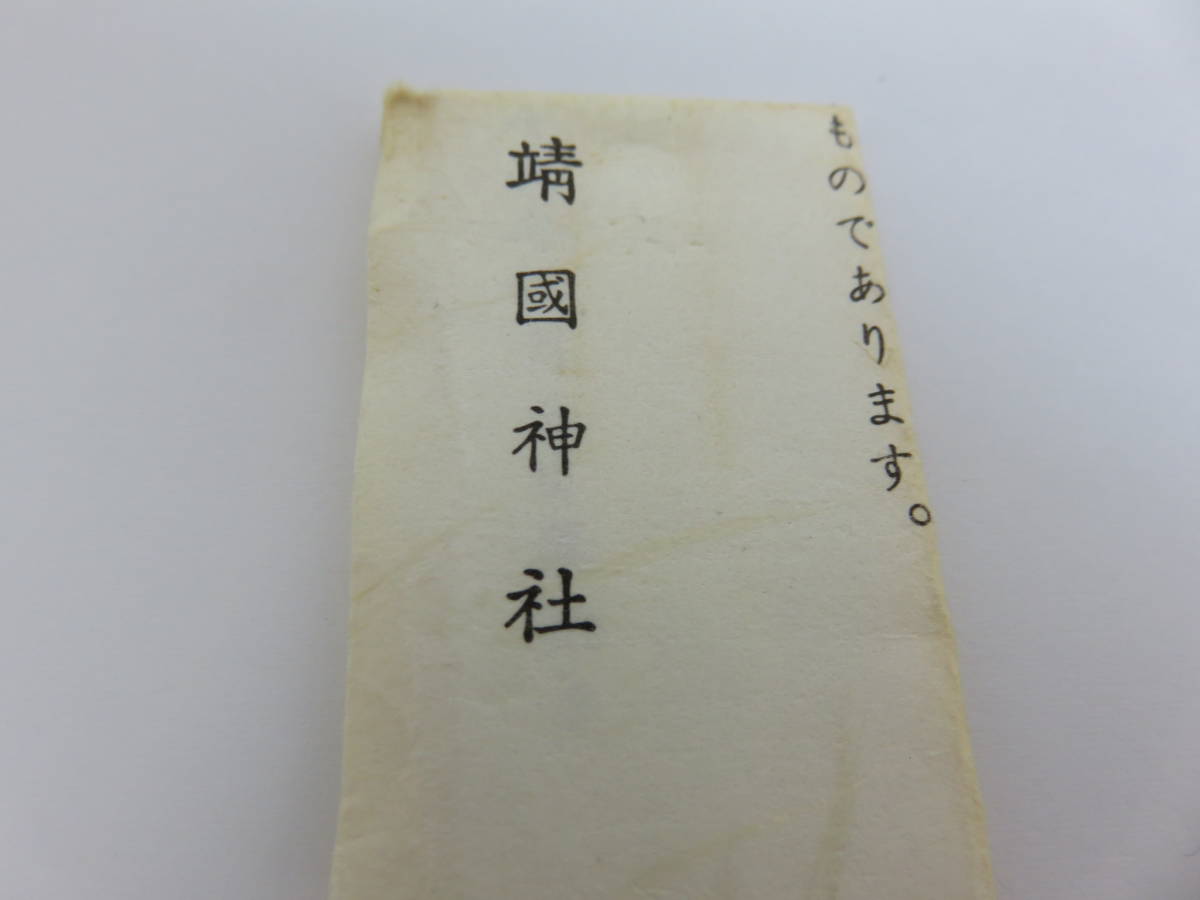 ものであります。
靖國神社